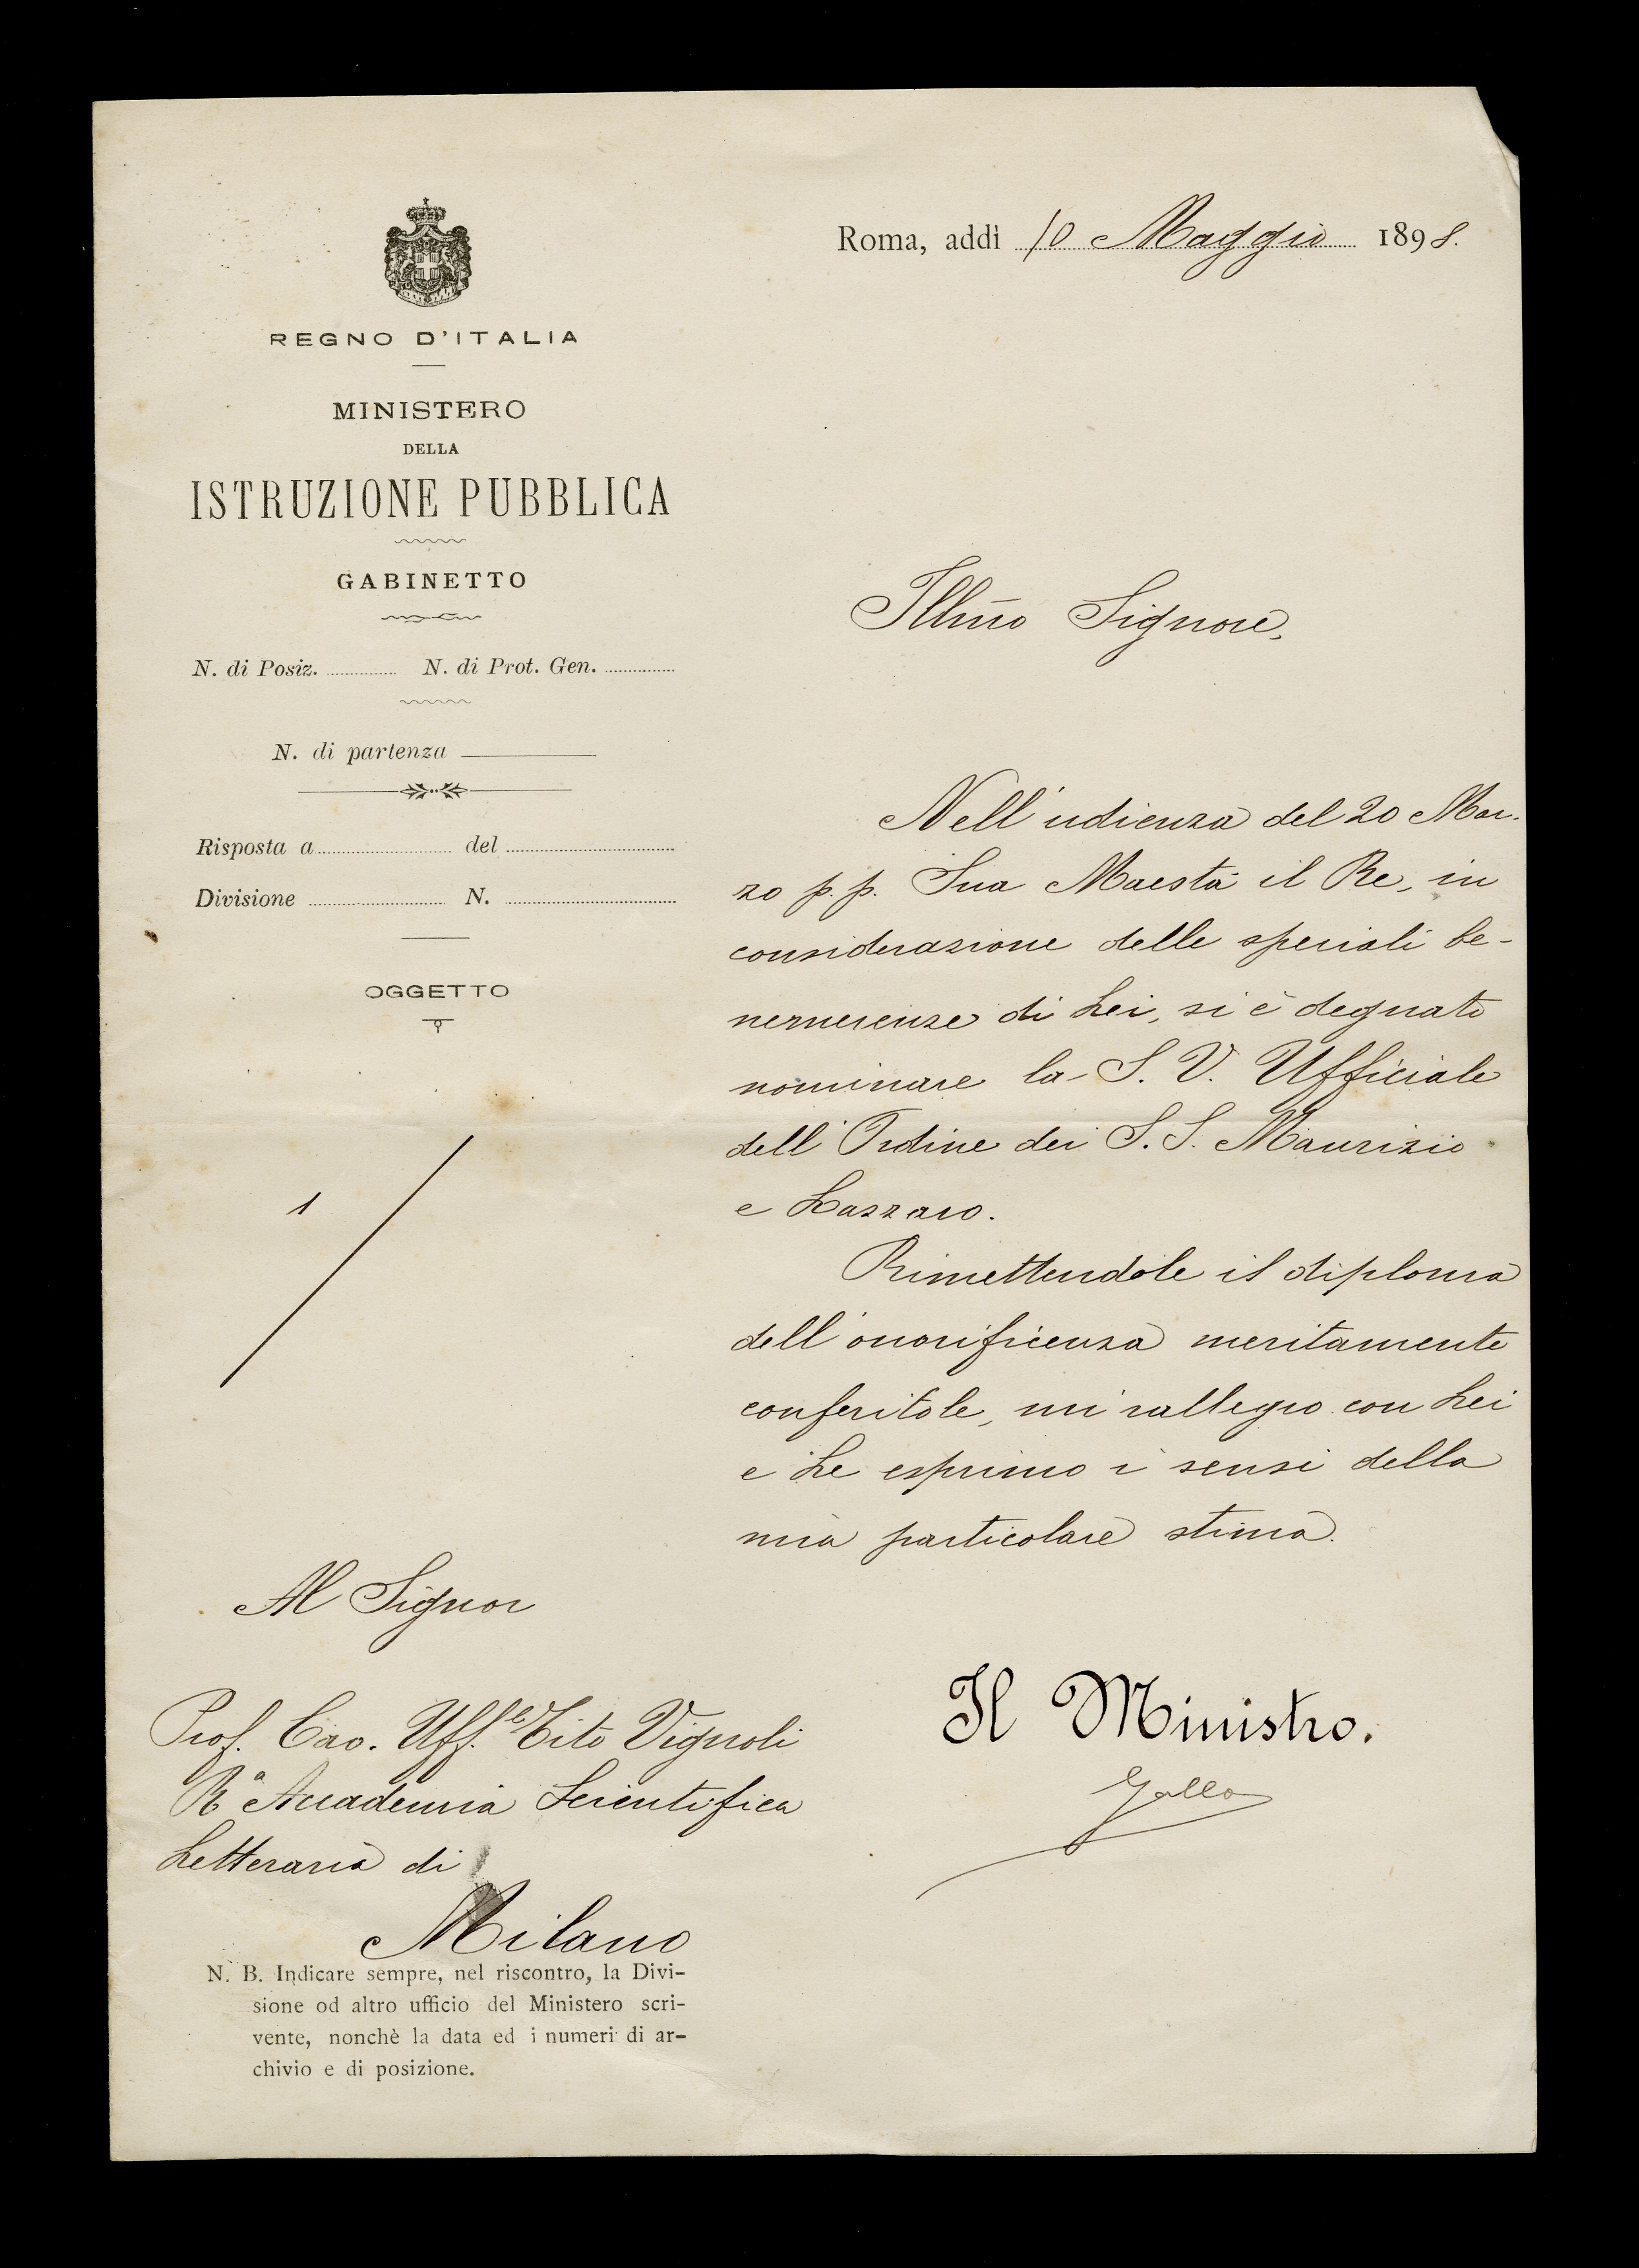 REGNO D'ITALIA
MINISTERO
DELLA
ISTRUZIONE PUBBLICA
GABINETTO
N. di Posiz. N. di Prot. Gen.
N. di partenza
Risposta a del
Divisione N.
OGGETTO
1
Roma, addì 10 Maggio 1898.
Illm̃o Signore,
Nell'udienza del 20 Mar-
zo p.p. Sua Maestà il Re, in
considerazione delle speciali be-
nemerenze di Lei, si è degnato
nominare la S. V. Ufficiale
dell'Ordine dei S.S. Maurizio
e Lazzaro.
Rimettendole il diploma
dell'onorificenza meritamente
conferitole, mi rallegro con Lei
e Le esprimo i sensi della
mia particolare stima.
Il Ministro.
Gallo
Al Signor
Prof. Cav. Uff.le Tito Vignoli
Ra Accademia Scientifica
Letteraria di
Milano
N. B. Indicare sempre, nel riscontro, la Divi-
sione od altro ufficio del Ministero scri-
vente, nonchè la data ed i numeri di ar-
chivio e di posizione.